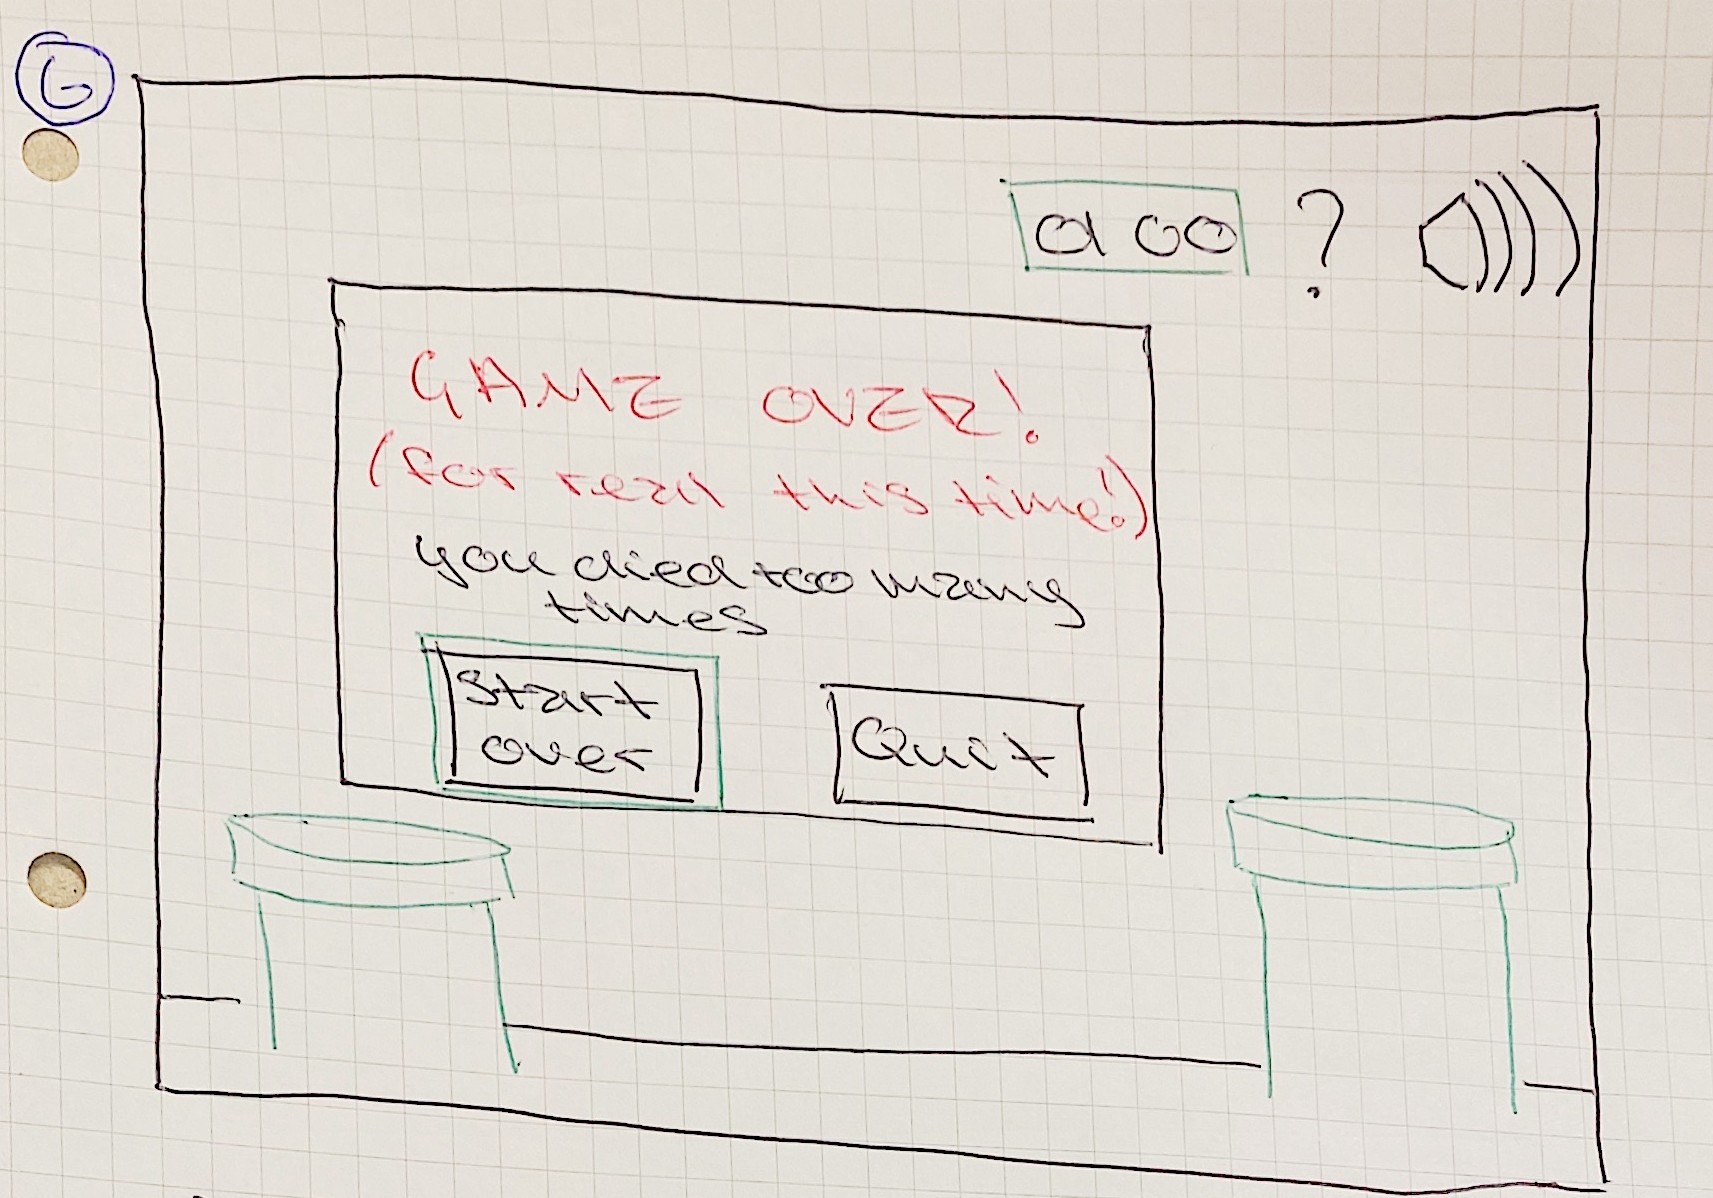 G
?
GAME OVER!
(for real this time!)
you died too many
times
Start
over
Quit